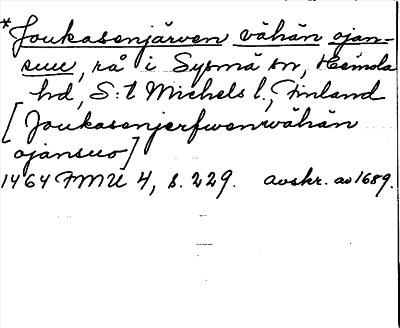 *Joukasenjärven vähän ojan-
suu, rå i Sysmä sn, Heinola
hd, S:t Michels l., Finland
[Joukasenjerfwenwähän
ojansuo]
1464 FMU 4, s. 229. avskr. av 1689.